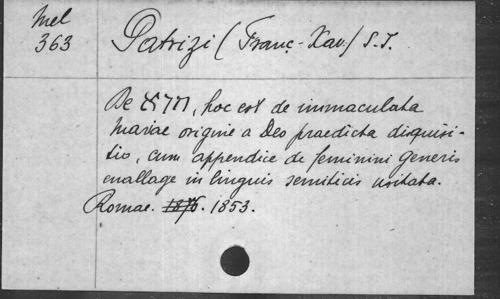 Mel
363
Patrizi (Franç.-Xav.) S.J.
De היא, hoc est de immaculata
Mariae origine a Deo praedicta disquisi-
tio, cum appendice de feminini generis
enallage in linguis semiticis usitata.
Romae. 1876. 1853.